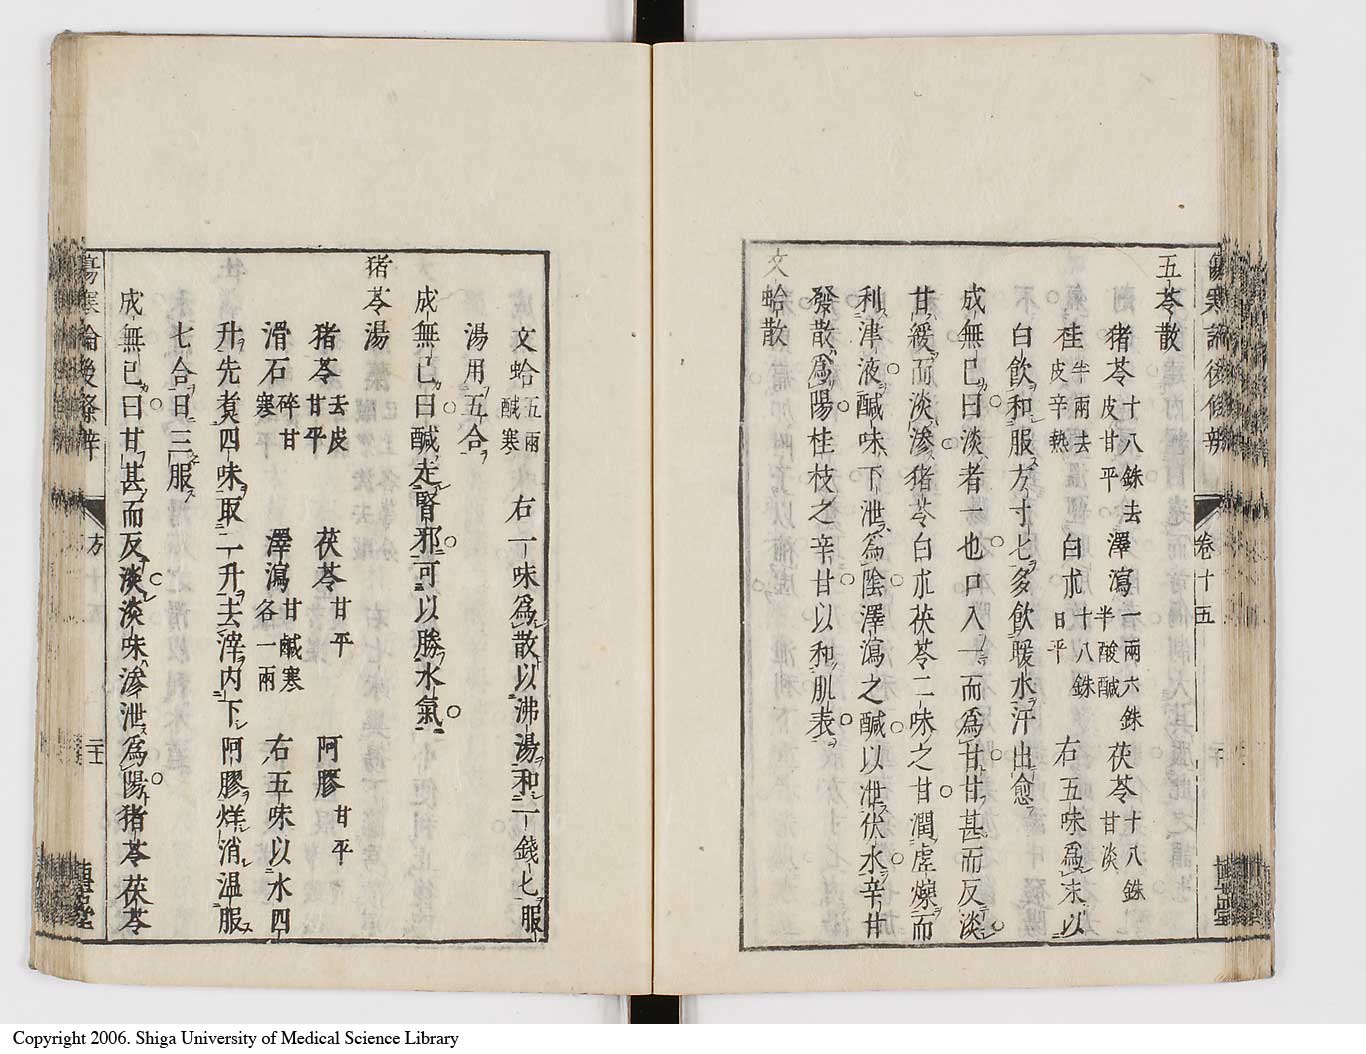 傷寒論後條辨
卷十五
五苓散
猪苓十八銖去皮甘平 澤瀉一兩六銖半酸鹹 茯苓十八銖甘淡
桂半兩去皮辛熱 白朮十八銖甘平 右五味爲末以
白飲和服方寸匕多飲暖水汗出愈
成無己曰淡者一也口入一而爲甘甘甚而反淡
甘緩而淡滲猪苓白朮茯苓二味之甘潤虛燥而
利津液鹹味下泄爲陰澤瀉之鹹以泄伏水辛甘
發散爲陽桂枝之辛甘以和肌表
文蛤散
文蛤五兩鹹寒 右一味爲散以沸湯和一錢匕服
湯用五合
成無己曰鹹走腎邪可以勝水氣
猪苓湯
猪苓去皮甘平 茯苓甘平 阿膠甘平
滑石碎甘寒 澤瀉甘鹹寒各一兩 右五味以水四
升先煮四味取二升去滓内下阿膠烊消温服
七合日三服
成無己曰甘甚而反淡淡味滲泄爲陽猪苓茯苓
傷寒論後條辨
方
十五
Copyright 2006. Shiga University of Medical Science Library